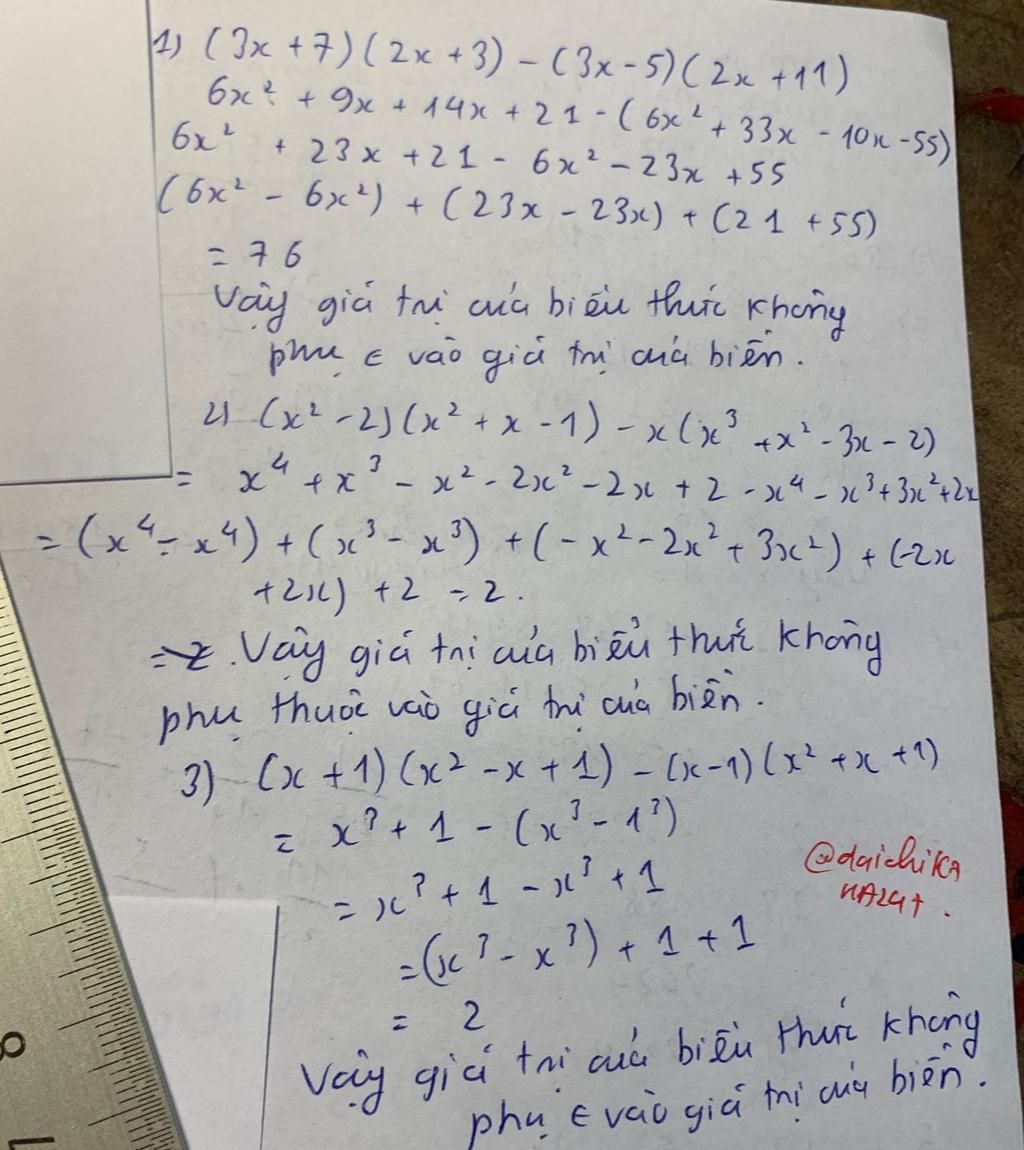 1) (3x + 7) (2x + 3) - (3x - 5) (2x + 11)
6x² + 9x + 14x + 21 - (6x² + 33x - 10x - 55)
6x² + 23x + 21 - 6x² - 23x + 55
(6x² - 6x²) + (23x - 23x) + (21 + 55)
= 76
Vậy giá trị của biểu thức không
phụ ∈ vào giá trị của biến.
2) (x² - 2) (x² + x - 1) - x (x³ + x² - 3x - 2)
= x⁴ + x³ - x² - 2x² - 2x + 2 - x⁴ - x³ + 3x² + 2x
= (x⁴ - x⁴) + (x³ - x³) + (- x² - 2x² + 3x²) + (-2x
+ 2x) + 2 = 2.
Vậy giá trị của biểu thức không
phụ thuộc vào giá trị của biến.
3) (x + 1) (x² - x + 1) - (x - 1) (x² + x + 1)
= x³ + 1 - (x³ - 1³)
= x³ + 1 - x³ + 1
= (x³ - x³) + 1 + 1
= 2
Vậy giá trị của biểu thức không
phụ ∈ vào giá trị của biến.
@daichiKA
8
7